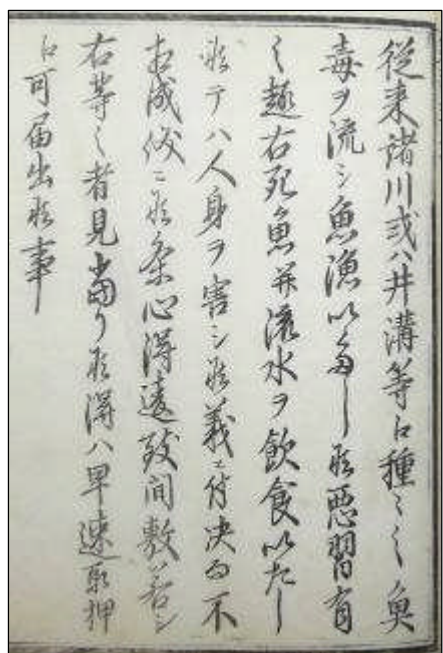 従来諸川或ハ井溝等江種々之魚
毒ヲ流シ魚漁いたし候悪習有
之趣右死魚并流水ヲ飲食いたし
候テハ人身ヲ害シ候義ニ付決而不
相成候ニ候条心得違致間敷若シ
右等之者見当り候得ハ早速取押
江可届出候事